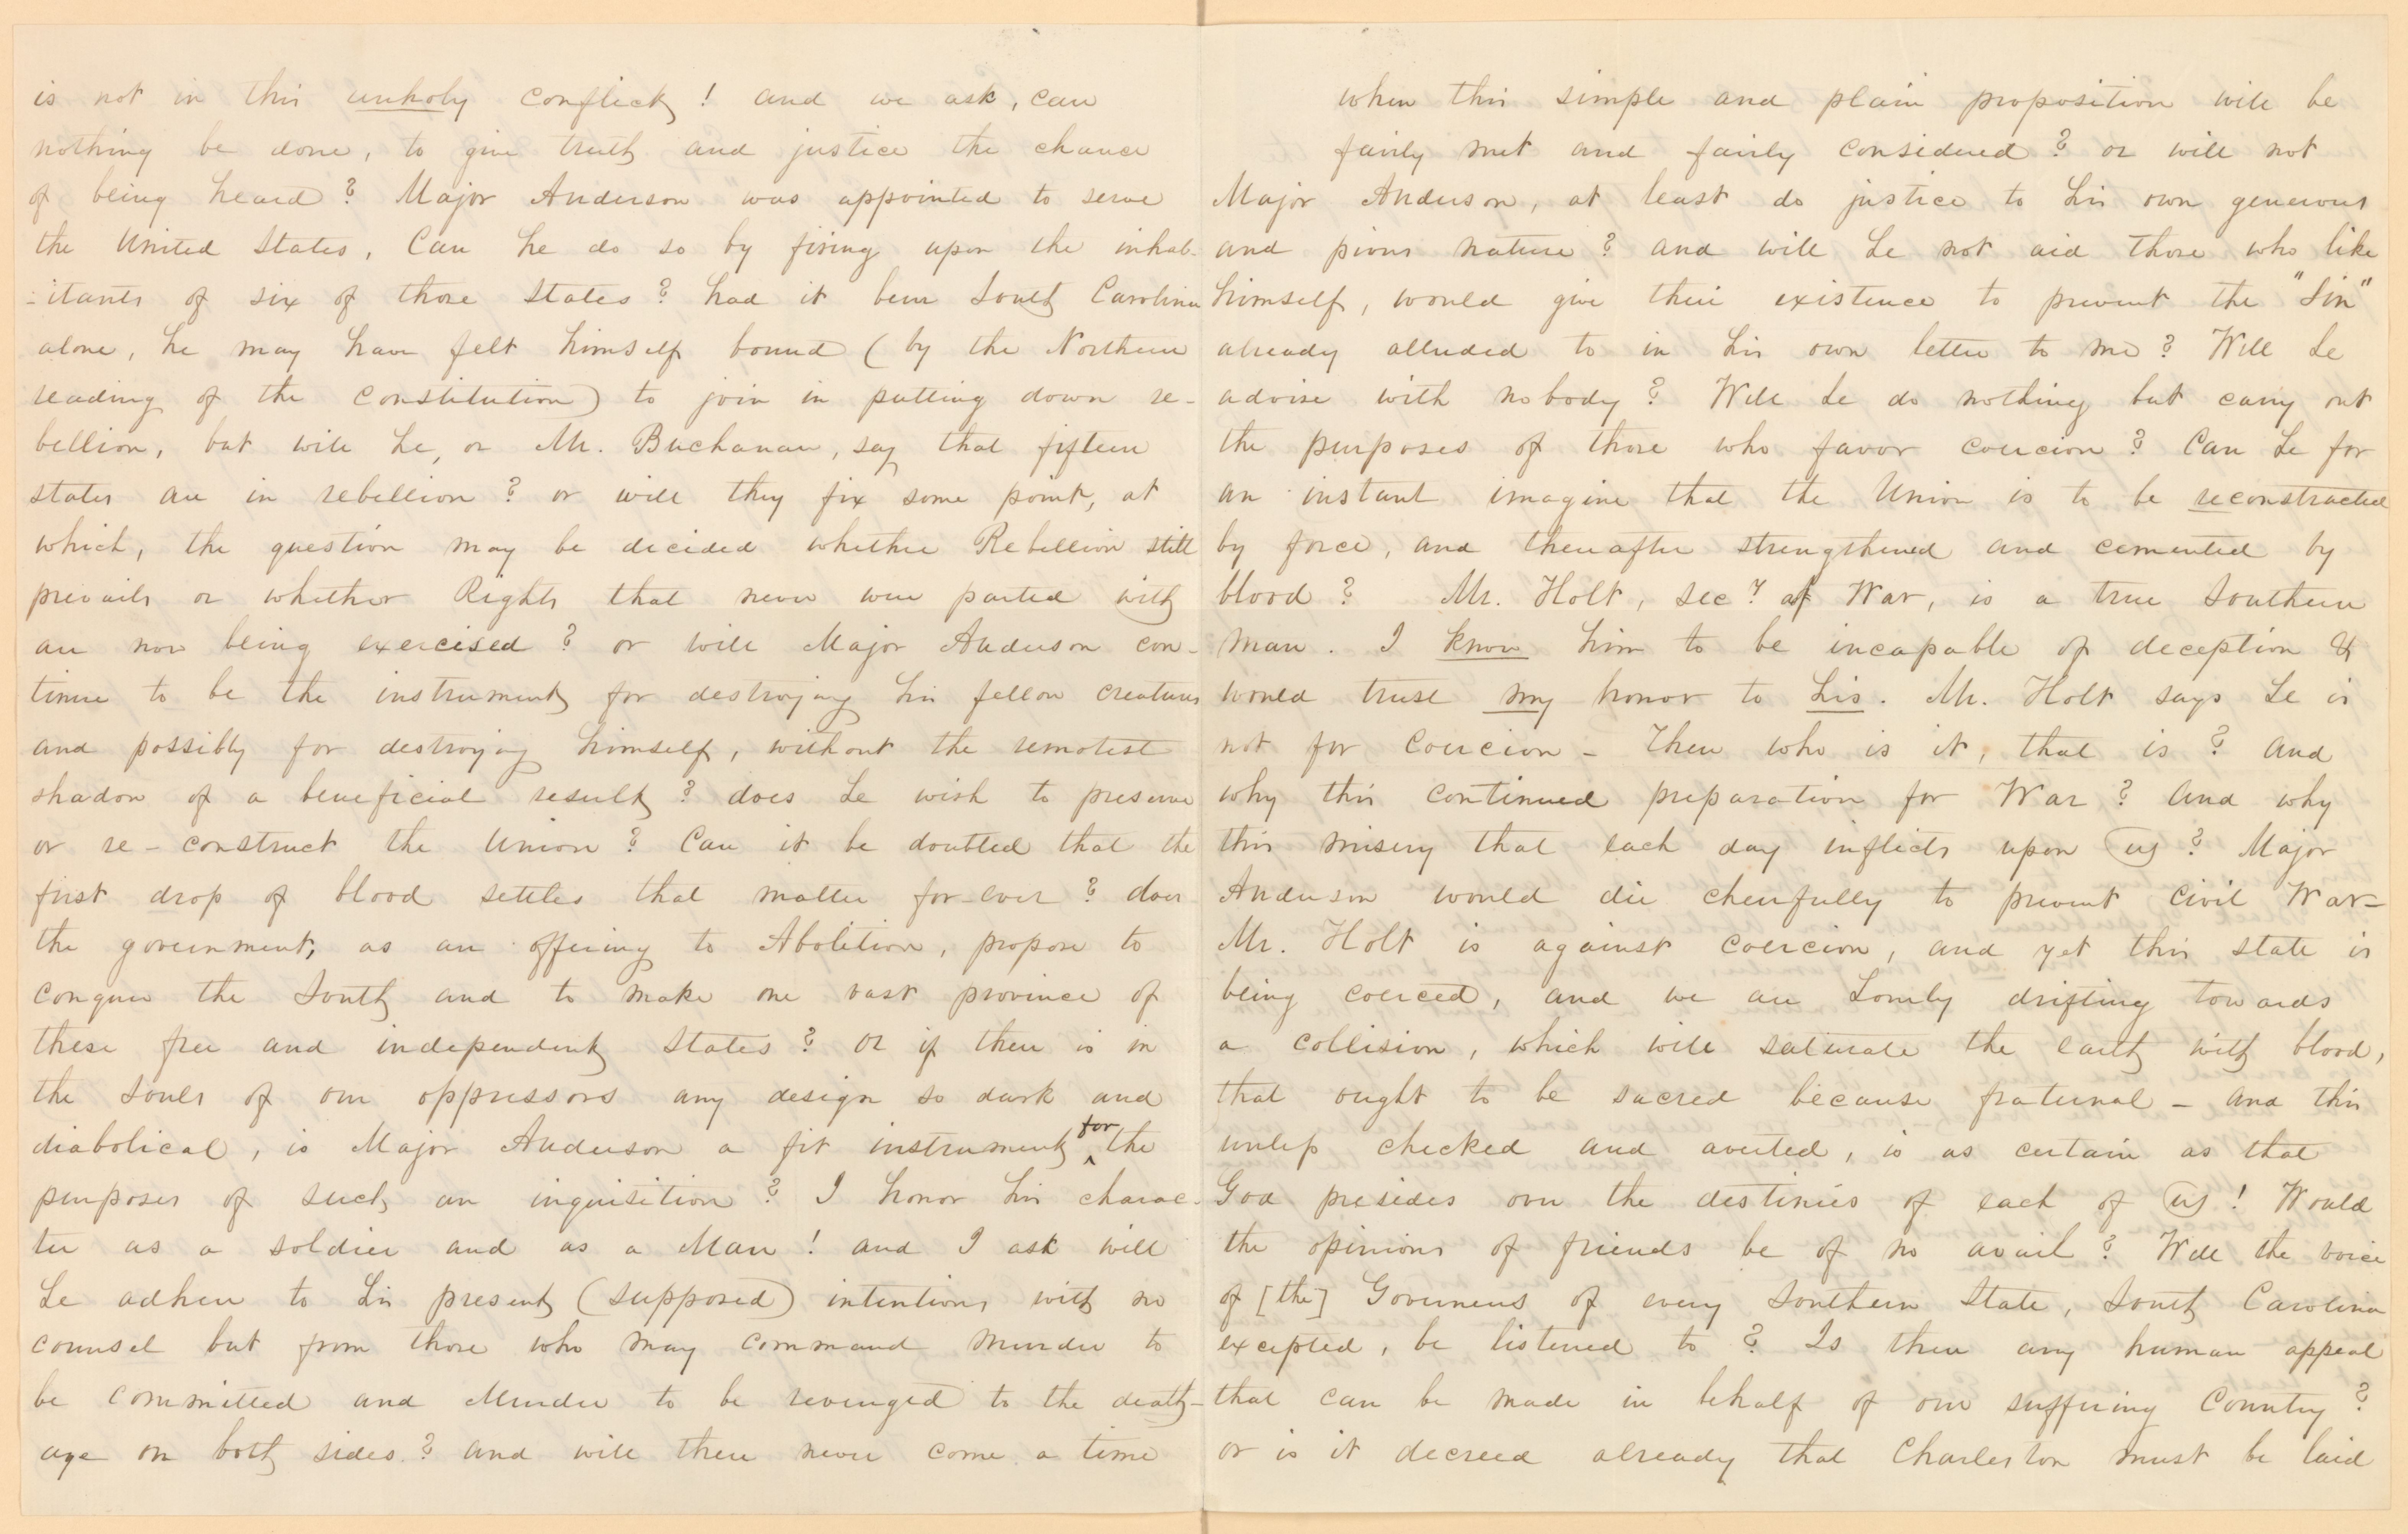 is not in this unholy conflict! and we ask, can
nothing be done, to give truth and justice the chance
of being heard? Major Anderson was appointed to serve
the United States, Can he do so by firing upon the inhab-
-itants of six of those States? had it been South Carolina
alone, he may have felt himself bound (by the Northern
reading of the Constitution) to join in putting down re-
bellion, but will he, or Mr. Buchanan, say that fifteen
states are in rebellion? or will they fix some point, at
which, the question may be decided whether Rebellion still
prevails or whether Rights that never were parted with
are now being exercised? or will Major Anderson con-
tinue to be the instrument for destroying his fellow creatures
and possibly for destroying himself, without the remotest
shadow of a beneficial result? does he wish to preserve
or re-construct the Union? Can it be doubted that the
first drop of blood settles that matter for-ever? does
the government, as an offering to Abolition, propose to
conquer the South and to make one vast province of
these free and independent States? Or if there is in
the souls of our oppressors any design so dark and
diabolical, is Major Anderson a fit instrument for the
purposes of such an inquisition? I honor his charac-
ter as a soldier and as a Man! and I ask will
he adhere to his present (supposed) intentions with no
counsel but from those who may command murder to
be committed and Murder to be revenged to the death-
age on both sides? and will there never come a time
when this simple and plain proposition will be
fairly met and fairly considered? or will not
Major Anderson, at least do justice to his own generous
and pious nature? and will he not aid those who like
himself, would give their existence to prevent the "Sin"
already alluded to in his own letter to me? Will he
advise with nobody? Will he do nothing but carry out
the purposes of those who favor coercion? Can he for
an instant imagine that the Union is to be reconstructed
by force, and thereafter strengthened and cemented by
blood? Mr. Holt, Secy of War, is a true Southern
man. I know him to be incapable of deception &
would trust my honor to his. Mr. Holt says he is
not for Coercion - Then who is it, that is? and
why this continued preparation for War? and why
this misery that each day inflicts upon us? Major
Anderson would die cheerfully to prevent Civil War-
Mr. Holt is against coercion, and yet this state is
being coerced, and we are hourly drifting towards
a collision, which will saturate the earth with blood,
that ought to be sacred because fraternal - and this
unless checked and averted, is as certain as that
God presides over the destinies of each of us! Would
the opinions of friends be of no avail? Will the voice
of [the] Governors of every Southern State, South Carolina
excepted, be listened to? Is there any human appeal
that can be made in behalf of our suffering Country?
or is it decreed already that Charleston must be laid